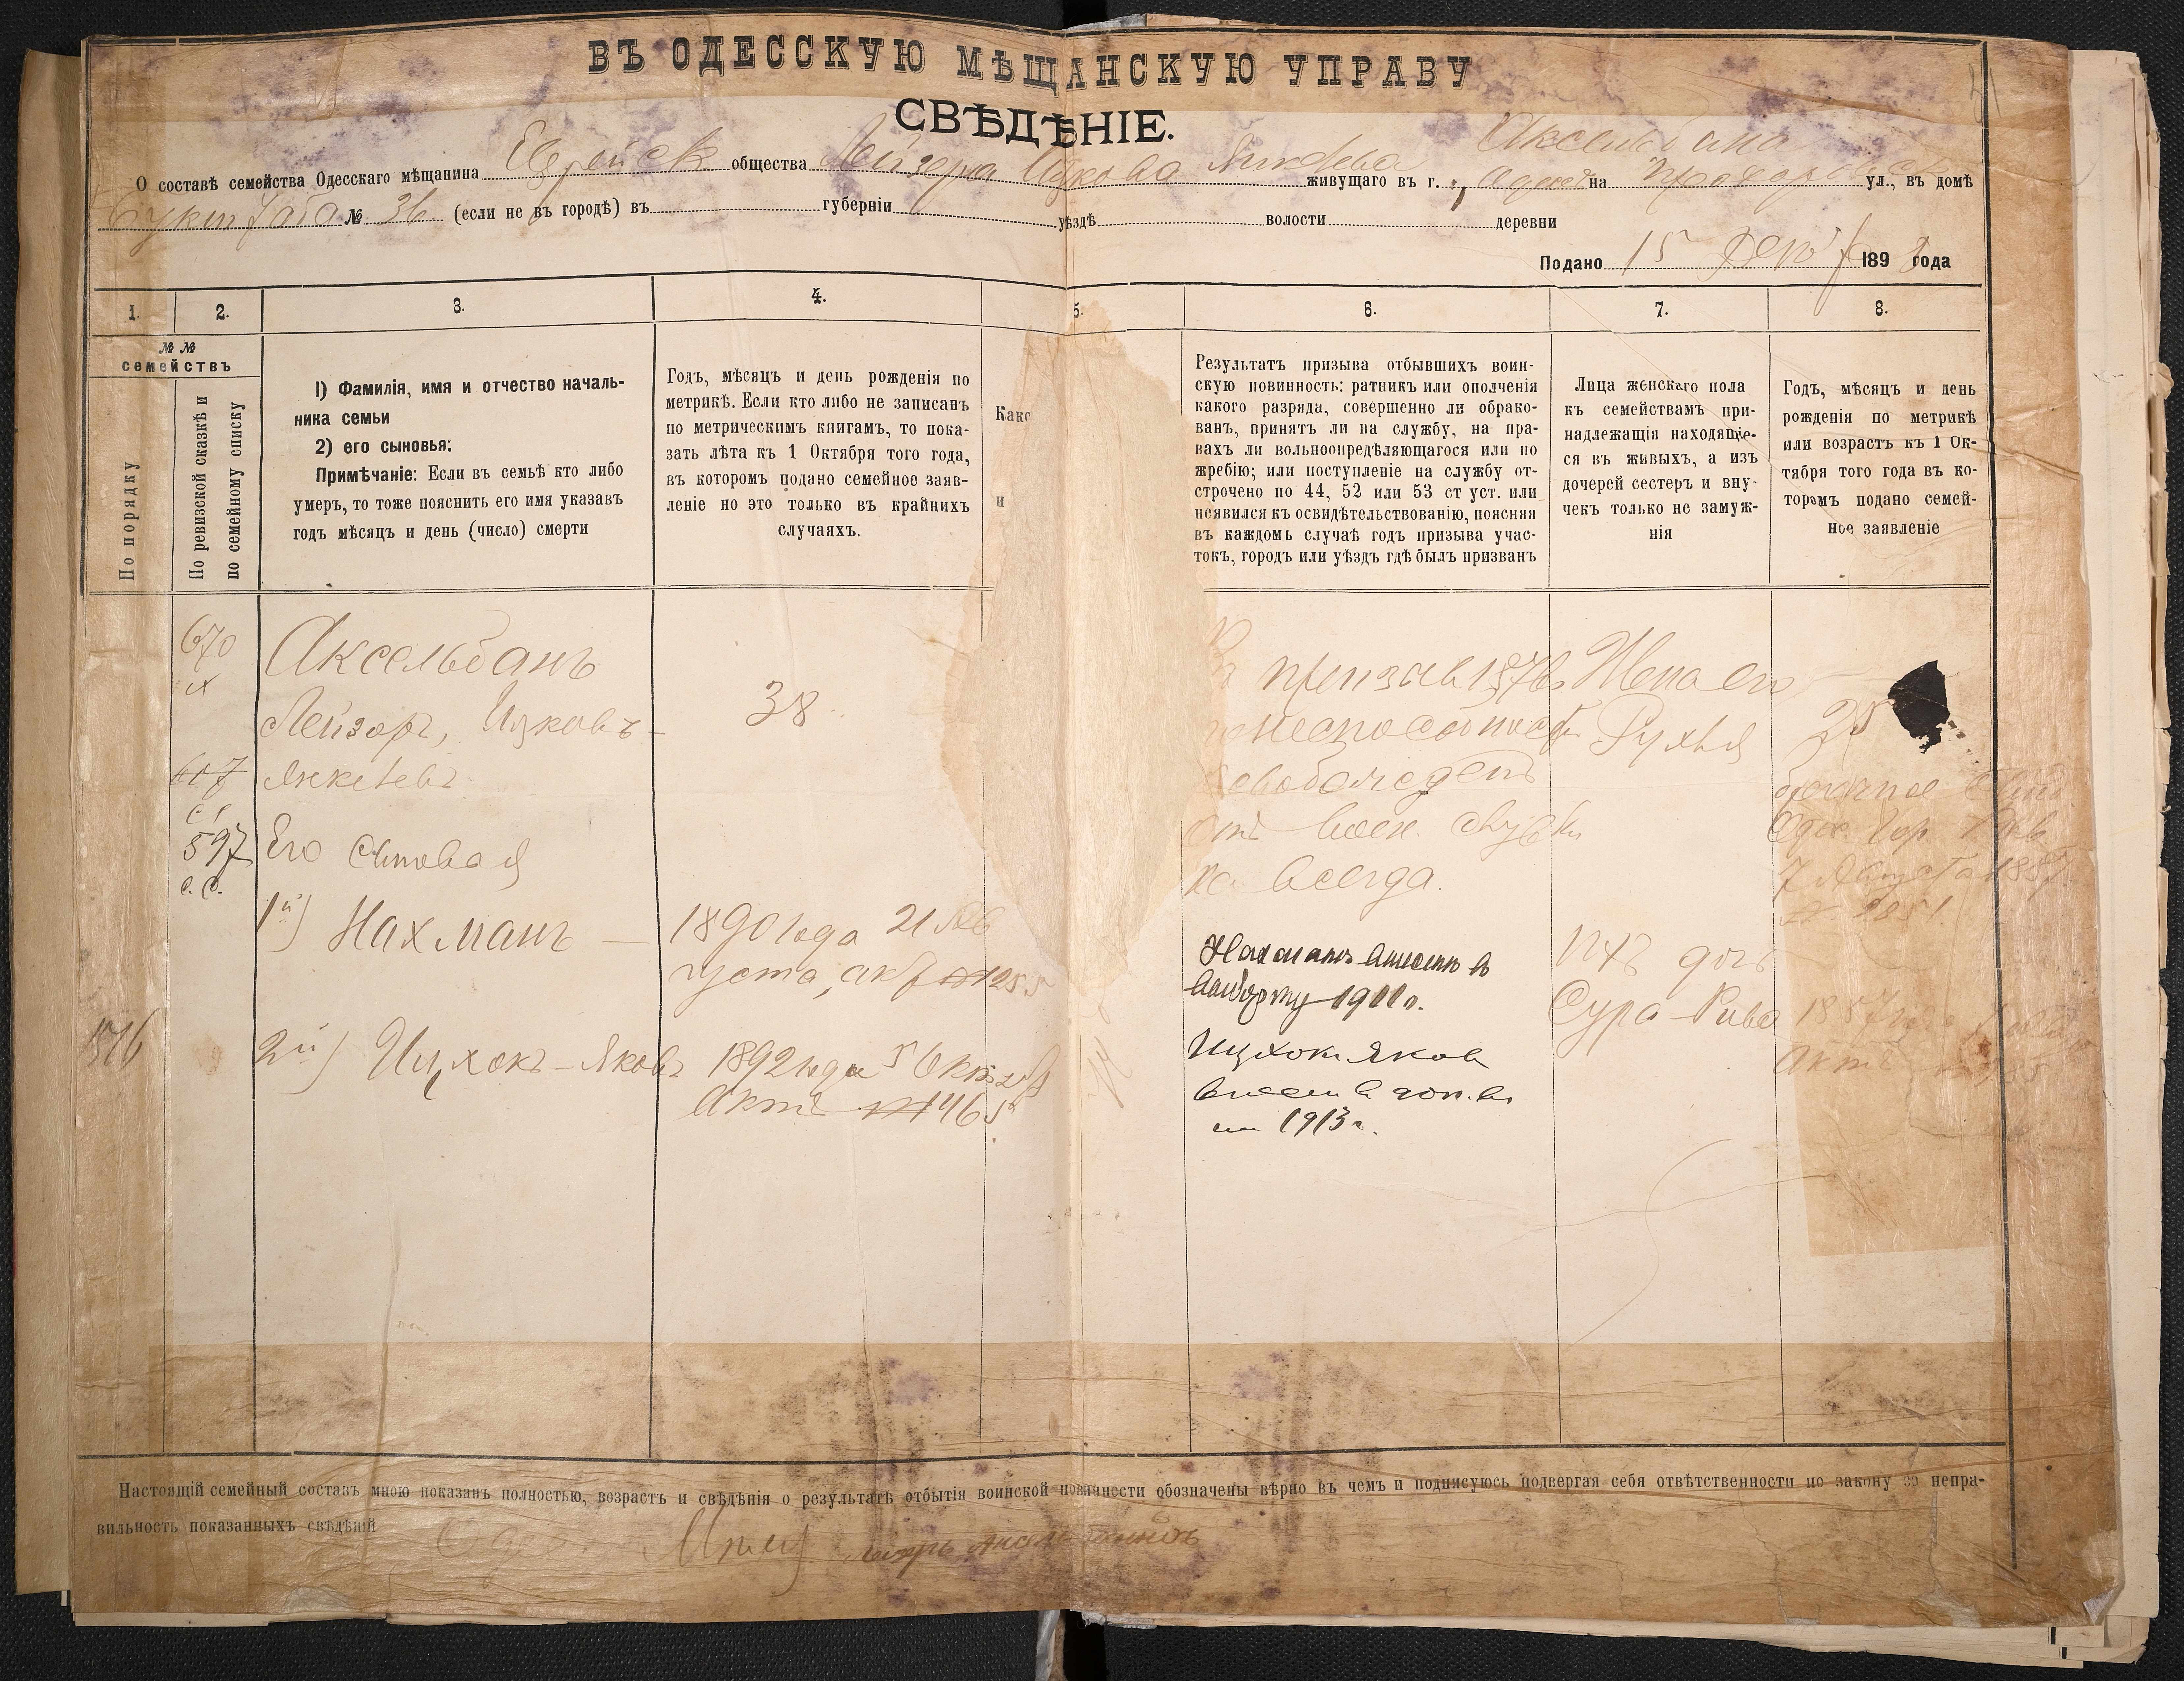 ВЪ ОДЕССКУЮ МѢЩАНСКУЮ УПРАВУ
СВѢДѢНІЕ.
О составѣ семейства Одесскаго мѣщанина Еврейск общества Лейзера Ицкова Янкелева Аксельбана живущаго въ г. Одессѣ на Прохоровской ул., въ домѣ
№ 36 (если не въ городѣ) въ губерніи уѣздѣ волости деревни
Подано 15 189 года
1.
2.
3.
4.
5.
6.
7.
8.
№ №
семействъ
По порядку
По ревизской сказкѣ и
по семейному списку
1) Фамилія, имя и отчество началь-
ника семьи
2) его сыновья:
Примѣчаніе: Если въ семьѣ кто либо
умеръ, то тоже пояснить его имя указавъ
годъ мѣсяцъ и день (число) смерти
Годъ, мѣсяцъ и день рожденія по
метрикѣ. Если кто либо не записанъ
по метрическимъ книгамъ, то пока-
зать лѣта къ 1 Октября того года,
въ которомъ подано семейное заяв-
леніе но это только въ крайнихъ
случаяхъ.
Како
и
Результатъ призыва отбывшихъ воин-
скую повинность: ратникъ или ополченія
какого разряда, совершенно ли обрако-
ванъ, принятъ ли на службу, на пра-
вахъ ли вольноопредѣляющагося или по
жребію; или поступленіе на службу от-
строчено по 44, 52 или 53 ст уст. или
неявился къ освидѣтельствованію, поясняя
въ каждомъ случаѣ годъ призыва учас-
токъ, городъ или уѣздъ гдѣ былъ призванъ
Лица женскаго пола
къ семействамъ при-
надлежащія находящіе-
ся въ живыхъ, а изъ
дочерей сестеръ и вну-
чекъ только не замуж-
нія
Годъ, мѣсяцъ и день
рожденія по метрикѣ
или возрастъ къ 1 Ок-
тября того года въ ко-
торомъ подано семей-
ное заявленіе
670
Аксельбанъ
Лейзоръ, Ицковъ-
Янкелевъ
38
607
597
с. с.
Его сыновья
1й) Нахманъ — 1890 года 21 Ав
густа, актъ №1255
1516
2й) Ицхокъ-Яковъ 1892 года 5 Октяб
Актъ № 465
призыв 187
неспособност
освобожденъ
отъ воен. службы
на всегда.
Нахманъ внесенъ в
выборку 1911 г.
Ицхокъ Яковъ
1913 г.
Жена его
Рухля
Ихъ дочь
Сура-Рива
Одес. Гор. Рав
7 Августа 1887
1887 года
Актъ
Настоящій семейный составъ мною показанъ полностью, возрастъ и свѣдѣнія о результатѣ отбытія воинской повинности обозначены вѣрно въ чемъ и подписуюсь подвергая себя отвѣтственности по закону за непра-
вильность показанныхъ свѣдѣній